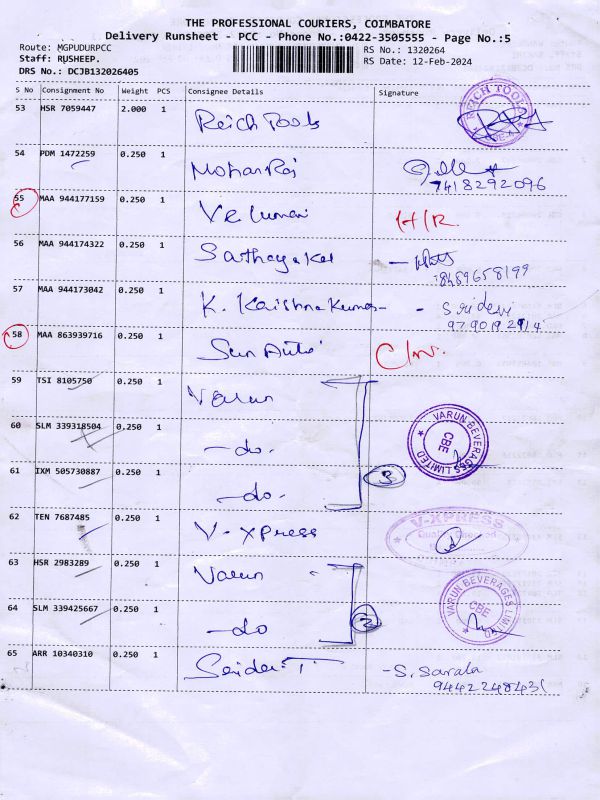 THE PROFESSIONAL COURIERS, COIMBATORE
Delivery Runsheet - PCC - Phone No.:0422-3505555 - Page No.:5
Route: MGPUDURPCC
RS No.: 1320264
Staff: RUSHEEP.
RS Date: 12-Feb-2024
DRS No.: DCJB132026405
S No Consignment No Weight PCS Consignee Details Signature
53 HSR 7059447 2.000 1 Reich Tools
REICH TOOLS
54 PDM 1472259 0.250 1 MohanRaj
7418292096
55 MAA 944177159 0.250 1 Velumani H/R.
56 MAA 944174322 0.250 1
8489658199
57 MAA 944173042 0.250 1 K. Kaishna Kumar - Sridevi
9790192914
58 MAA 863939716 0.250 1 Sun Auto
59 TSI 8105750 0.250 1 Varun
60 SLM 339318504 0.250 1 -do-
VARUN BEVERAGES LIMITED CBE
61 IXM 505730887 0.250 1 -do-
3
62 TEN 7687485 0.250 1 V-Xpress
V-XPRESS
63 HSR 2983289 0.250 1 Varun
64 SLM 339425667 0.250 1 -do
2
VARUN BEVERAGES LIMITED CBE
65 ARR 10340310 0.250 1 - S. Sarala
9442248431